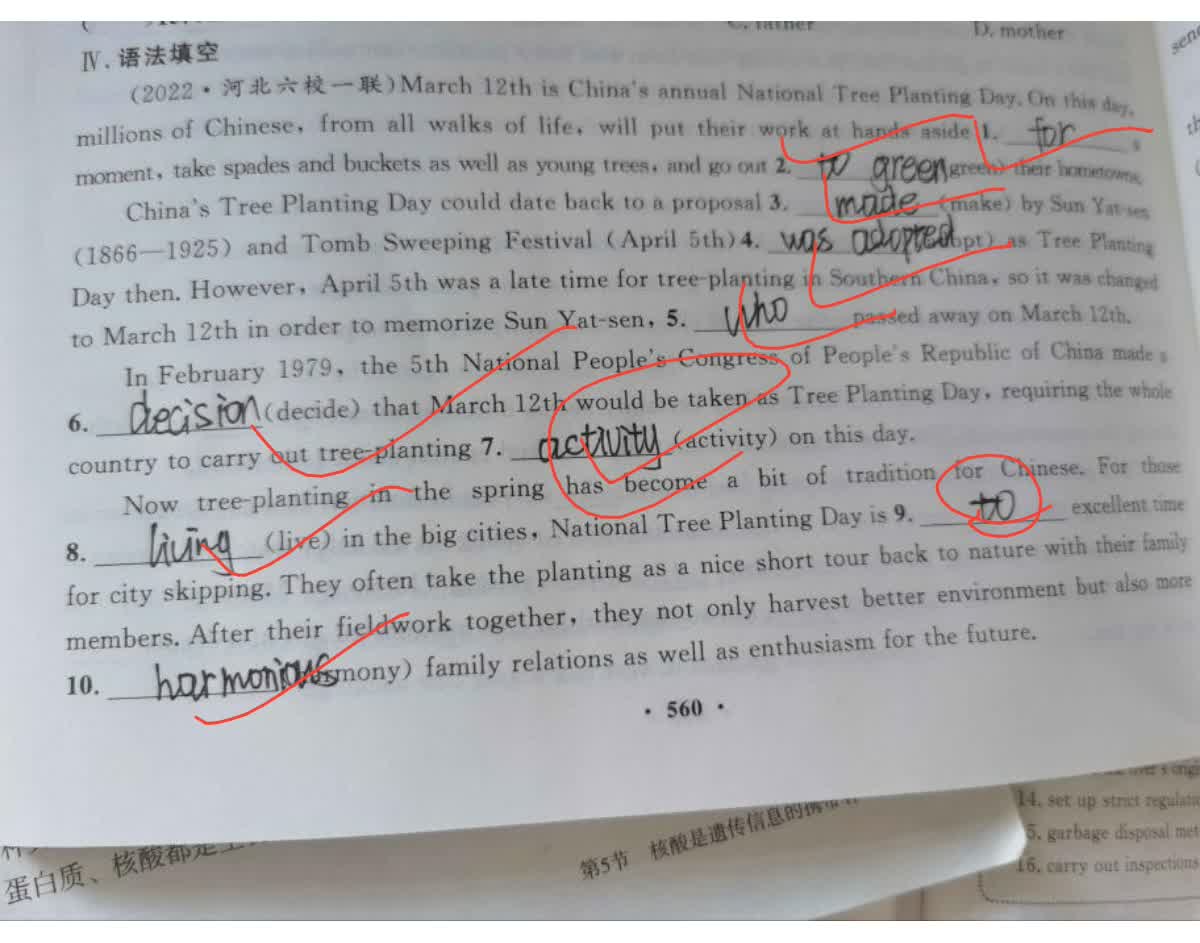 C. father D. mother
Ⅳ. 语法填空
(2022·河北六校一联)March 12th is China's annual National Tree Planting Day. On this day,
millions of Chinese, from all walks of life, will put their work at hands aside 1. for
moment, take spades and buckets as well as young trees, and go out 2. to green green) their hometowns.
China's Tree Planting Day could date back to a proposal 3. made (make) by Sun Yat-sen
(1866—1925) and Tomb Sweeping Festival (April 5th) 4. was adopted opt) as Tree Planting
Day then. However, April 5th was a late time for tree-planting in Southern China, so it was changed
to March 12th in order to memorize Sun Yat-sen, 5. who passed away on March 12th.
In February 1979, the 5th National People's Congress of People's Republic of China made
6. decision (decide) that March 12th would be taken as Tree Planting Day, requiring the whole
country to carry out tree-planting 7. activity (activity) on this day.
Now tree-planting in the spring has become a bit of tradition for Chinese. For those
8. living (live) in the big cities, National Tree Planting Day is 9. to excellent time
for city skipping. They often take the planting as a nice short tour back to nature with their family
members. After their fieldwork together, they not only harvest better environment but also more
10. harmonious mony) family relations as well as enthusiasm for the future.
· 560 ·
14. set up strict
5. garbage disposal
16. carry out inspections
第5节 核酸是遗传信息的携
蛋白质、核酸都是